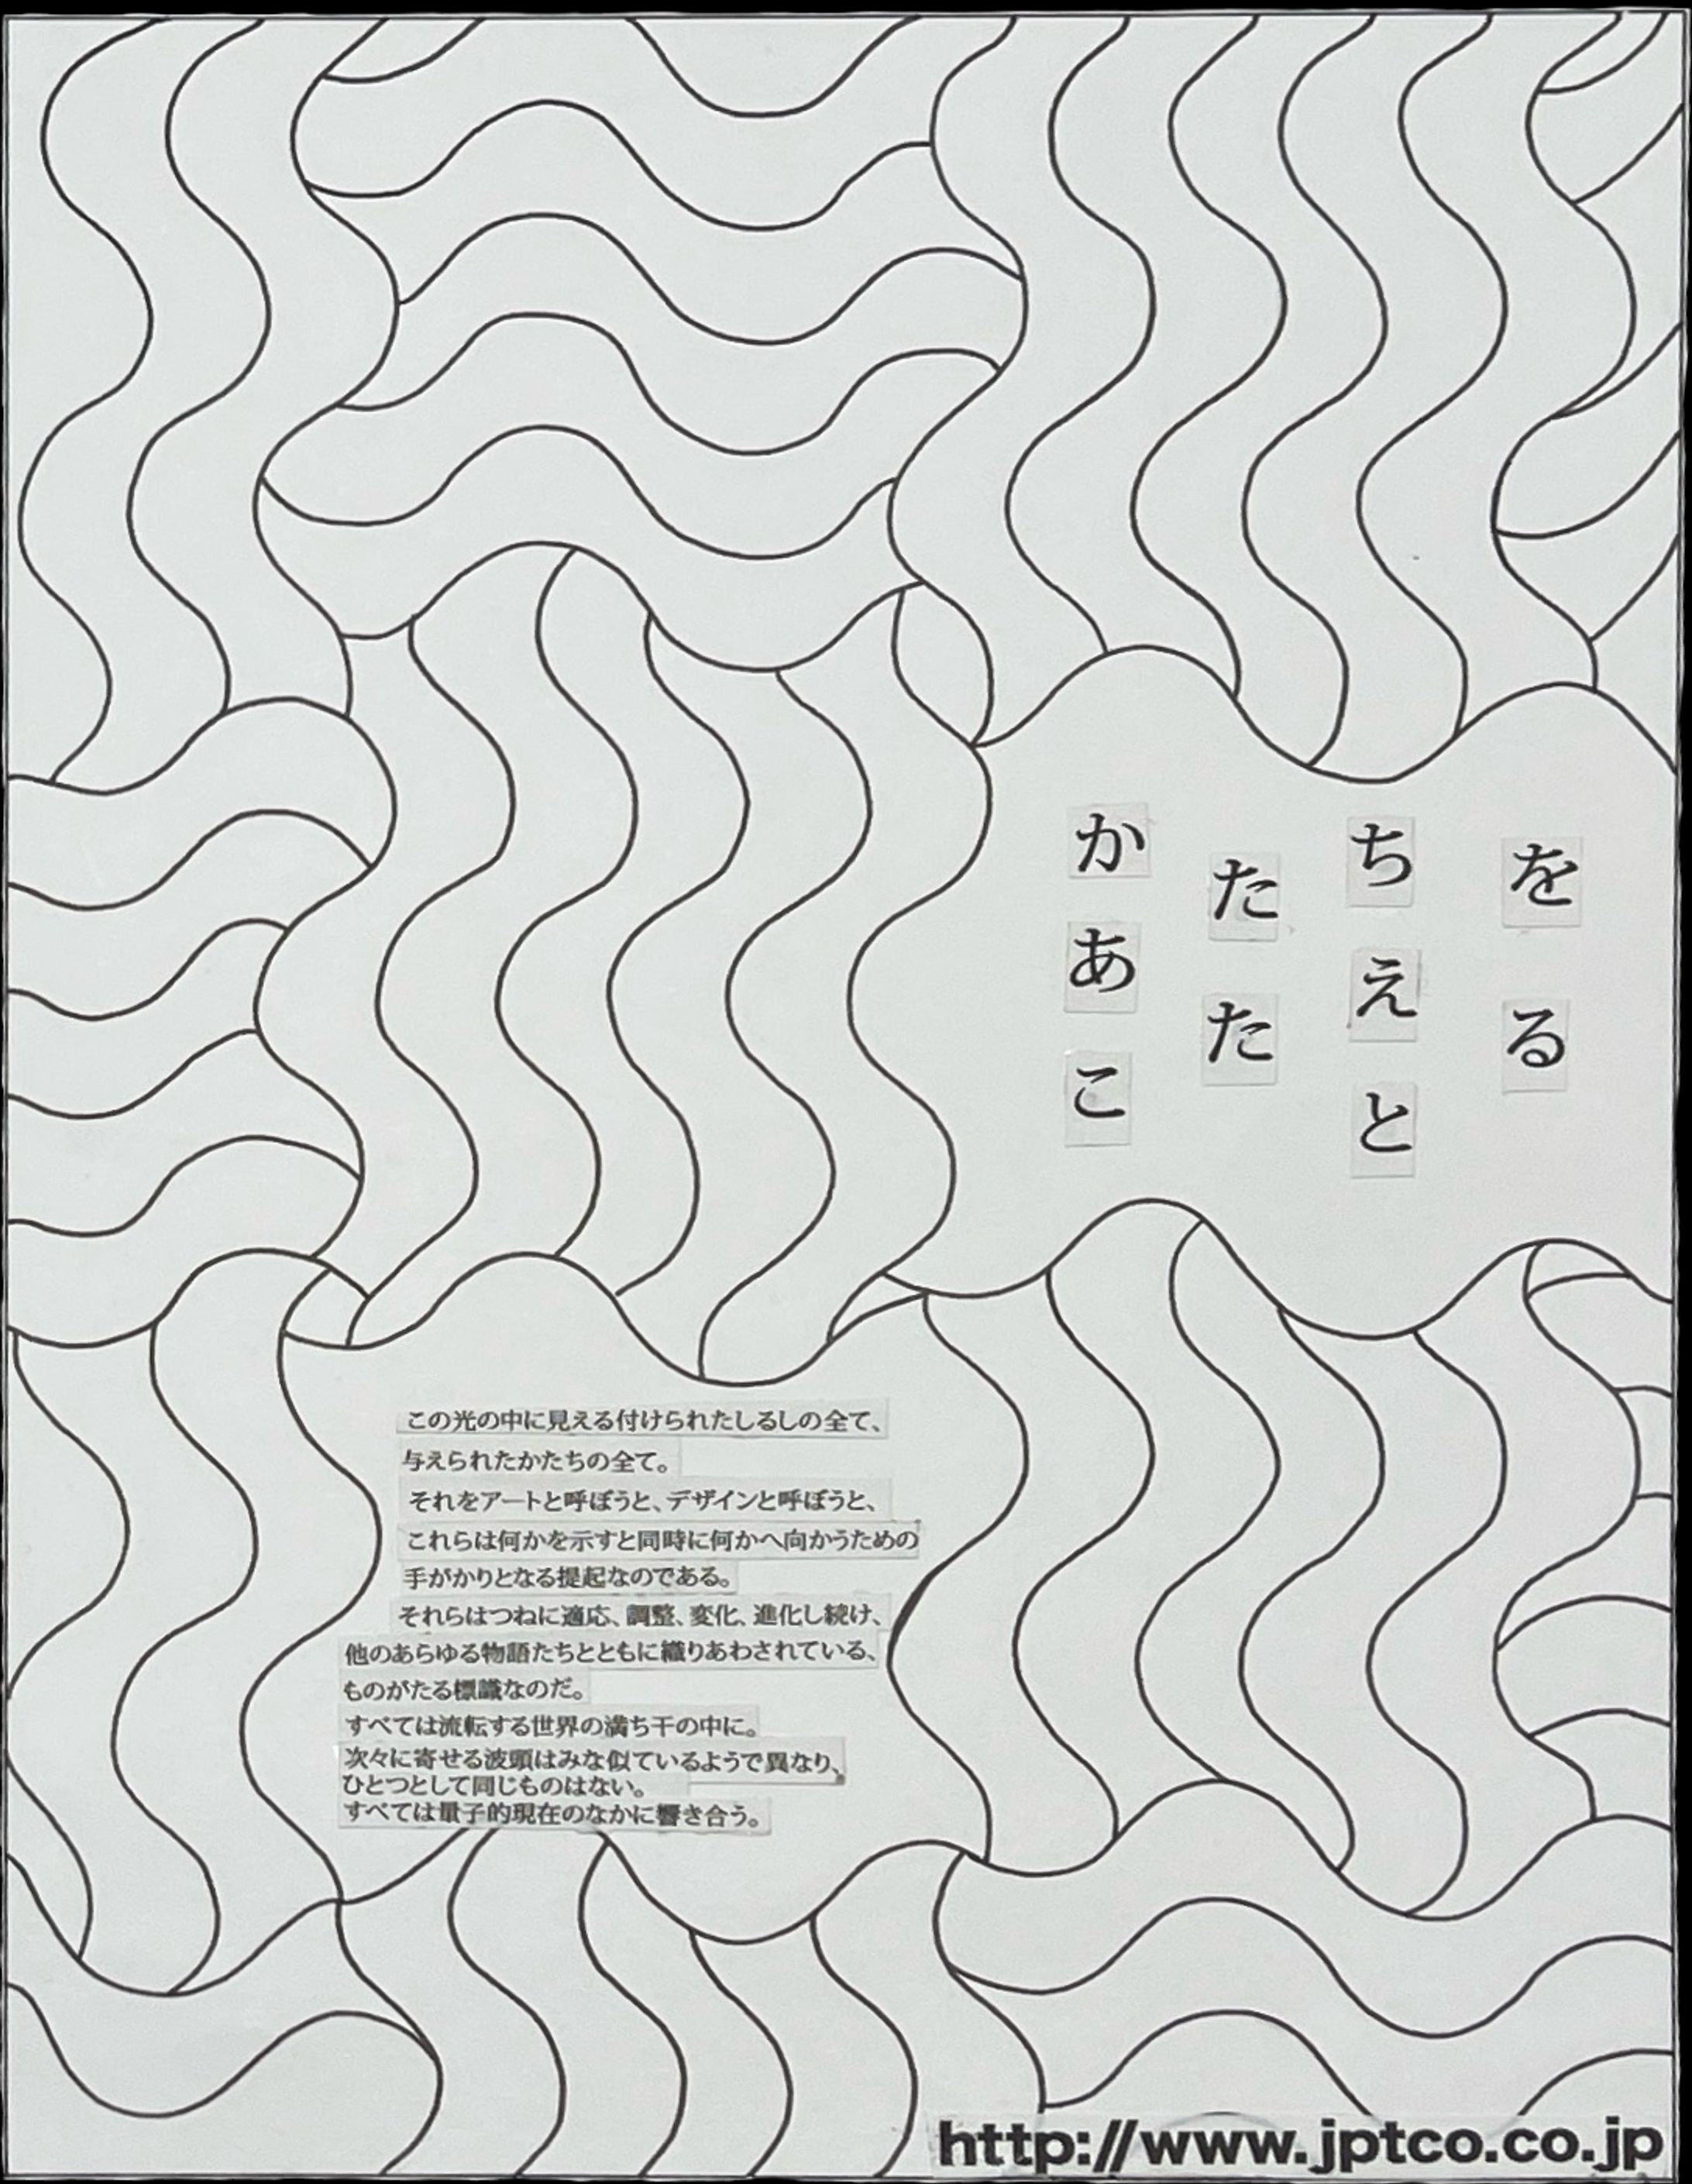 かたちを
あたえる
こと
この光の中に見える付けられたしるしの全て、
与えられたかたちの全て。
それをアートと呼ぼうと、デザインと呼ぼうと、
これらは何かを示すと同時に何かへ向かうための
手がかりとなる提起なのである。
それらはつねに適応、調整、変化、進化し続け、
他のあらゆる物語たちとともに織りあわされている、
ものがたる標識なのだ。
すべては流転する世界の満ち干の中に。
次々に寄せる波頭はみな似ているようで異なり、
ひとつとして同じものはない。
すべては量子的現在のなかに響き合う。
http://www.jptco.co.jp